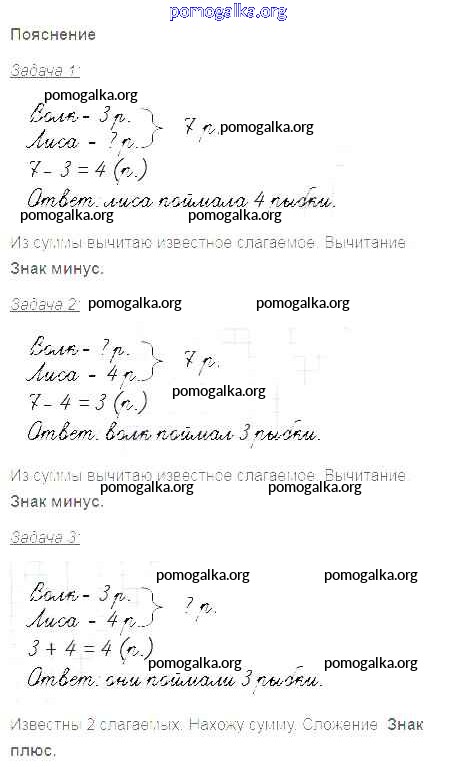 pomogalka.org
Пояснение
Задача 1:
pomogalka.org
Волк - 3 р.
Лиса - ? р.
7 р.
pomogalka.org
7 - 3 = 4 (р.)
Ответ: лиса поймала 4 рыбки.
pomogalka.org pomogalka.org
Из суммы вычитаю известное слагаемое. Вычитание.
Знак минус.
Задача 2: pomogalka.org pomogalka.org
Волк - ? р.
Лиса - 4 р.
7 р.
pomogalka.org
7 - 4 = 3 (р.)
Ответ: волк поймал 3 рыбки.
Из суммы вычитаю известное слагаемое. Вычитание.
pomogalka.org pomogalka.org
Знак минус.
Задача 3:
pomogalka.org pomogalka.org
Волк - 3 р.
Лиса - 4 р.
? р.
3 + 4 = 4 (р.)
pomogalka.org pomogalka.org
Ответ: они поймали 3 рыбки.
Известны 2 слагаемых. Нахожу сумму. Сложение. Знак
плюс.